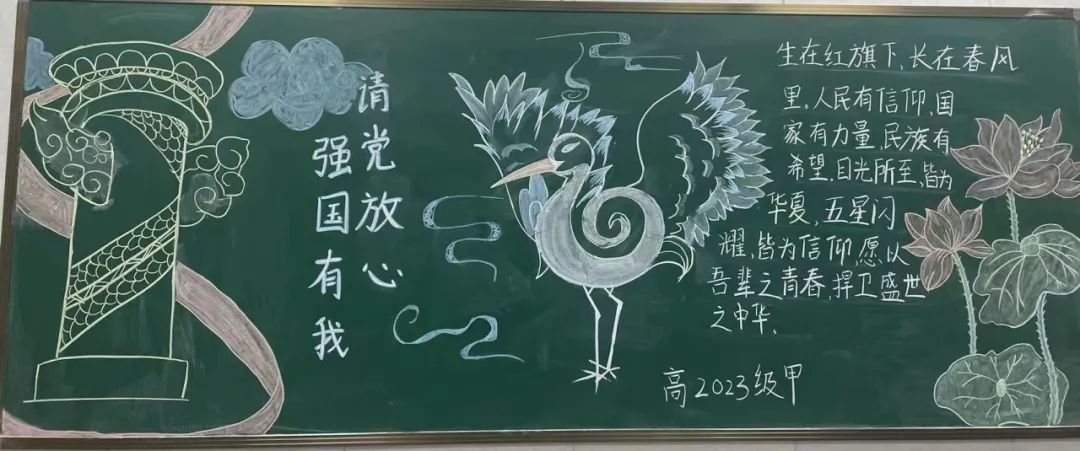 请党放心
强国有我
生在红旗下,长在春风
里.人民有信仰,国
家有力量,民族有
希望.目光所至,皆为
华夏,五星闪
耀,皆为信仰,愿以
吾辈之青春,捍卫盛世
之中华.
高2023级甲